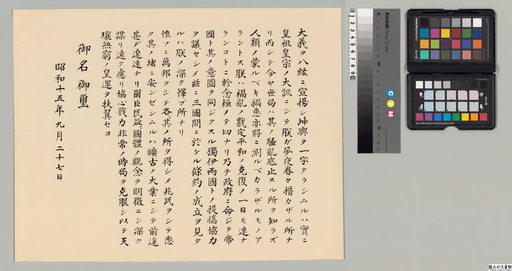 大義ヲ八紘ニ宣揚シ坤輿ヲ一宇タラシムルハ實ニ
皇祖皇宗ノ大訓ニシテ朕ガ夙夜眷々措カザル所ナ
リ而シテ今ヤ世局ハ其ノ騷亂底止スル所ヲ知ラズ
人類ノ蒙ルベキ禍患亦將ニ測ルベカラザルモノア
ラントス朕ハ禍亂ノ戡定平和ノ克復ノ一日モ速ナ
ランコトニ軫念極メテ切ナリ乃チ政府ニ命ジテ帝
國ト其ノ意圖ヲ同ジクスル獨伊兩國トノ提攜協力
ヲ議セシメ茲ニ三國間ニ於ケル條約ノ成立ヲ見タ
ルハ朕ノ深ク懌ブ所ナリ
惟フニ萬邦ヲシテ各其ノ所ヲ得シメ兆民ヲシテ悉
ク其ノ堵ニ安ンゼシムルハ曠古ノ大業ニシテ前途
甚ダ遼遠ナリ爾臣民益國體ノ觀念ヲ明徵ニシ深ク
謀リ遠ク慮リ協心戮力非常ノ時局ヲ克服シ以テ天
壤無窮ノ皇運ヲ扶翼セヨ
御名御璽
昭和十五年九月二十七日
Kodak